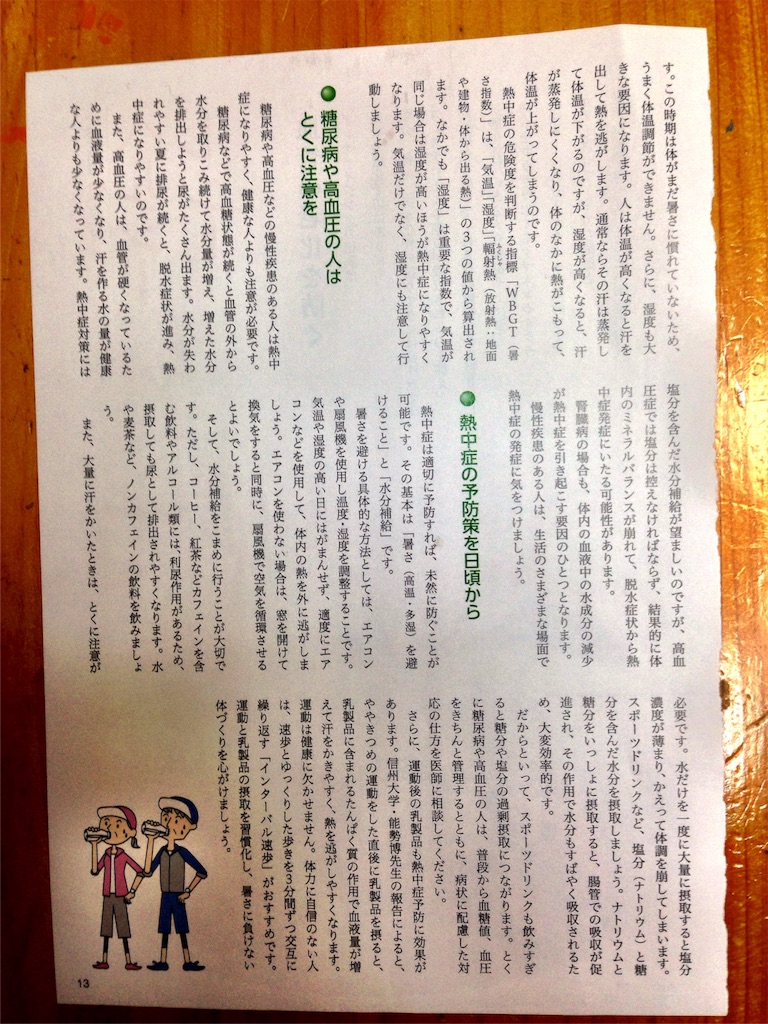 す。この時期は体がまだ暑さに慣れていないため、
うまく体温調節ができません。さらに、湿度も大
きな要因になります。人は体温が高くなると汗を
出して熱を逃がします。通常ならその汗は蒸発し
て体温が下がるのですが、湿度が高くなると、汗
が蒸発しにくくなり、体のなかに熱がこもって、
体温が上がってしまうのです。
熱中症の危険度を判断する指標「WBGT(暑
さ指数)」は、「気温」「湿度」「輻射熱(放射熱:地面
ふくしゃ
や建物・体から出る熱)」の3つの値から算出され
ます。なかでも「湿度」は重要な指数で、気温が
同じ場合は湿度が高いほうが熱中症になりやすく
なります。気温だけでなく、湿度にも注意して行
動しましょう。
●糖尿病や高血圧の人は
とくに注意を
糖尿病や高血圧などの慢性疾患のある人は熱中
症になりやすく、健康な人よりも注意が必要です。
糖尿病などで高血糖状態が続くと血管の外から
水分を取りこみ続けて水分量が増え、増えた水分
を排出しようと尿がたくさん出ます。水分が失わ
れやすい夏に排尿が続くと、脱水症状が進み、熱
中症になりやすいのです。
また、高血圧の人は、血管が硬くなっているた
めに血液量が少なくなり、汗を作る水の量が健康
な人よりも少なくなっています。熱中症対策には
塩分を含んだ水分補給が望ましいのですが、高血
圧症では塩分は控えなければならず、結果的に体
内のミネラルバランスが崩れて、脱水症状から熱
中症発症にいたる可能性があります。
腎臓病の場合も、体内の血液中の水成分の減少
が熱中症を引き起こす要因のひとつとなります。
慢性疾患のある人は、生活のさまざまな場面で
熱中症の発症に気をつけましょう。
●熱中症の予防策を日頃から
熱中症は適切に予防すれば、未然に防ぐことが
可能です。その基本は「暑さ(高温・多湿)を避
けること」と「水分補給」です。
暑さを避ける具体的な方法としては、エアコン
や扇風機を使用し温度・湿度を調整することです。
気温や湿度の高い日にはがまんせず、適度にエア
コンなどを使用して、体内の熱を外に逃がしま
しょう。エアコンを使わない場合は、窓を開けて
換気をすると同時に、扇風機で空気を循環させる
とよいでしょう。
そして、水分補給をこまめに行うことが大切で
す。ただし、コーヒー、紅茶などカフェインを含
む飲料やアルコール類には、利尿作用があるため、
摂取しても尿として排出されやすくなります。水
や麦茶など、ノンカフェインの飲料を飲みましょ
う。
また、大量に汗をかいたときは、とくに注意が
必要です。水だけを一度に大量に摂取すると塩分
濃度が薄まり、かえって体調を崩してしまいます。
スポーツドリンクなど、塩分(ナトリウム)と糖
分を含んだ水分を摂取しましょう。ナトリウムと
糖分をいっしょに摂取すると、腸管での吸収が促
進され、その作用で水分もすばやく吸収されるた
め、大変効率的です。
だからといって、スポーツドリンクも飲みすぎ
ると糖分や塩分の過剰摂取につながります。とく
に糖尿病や高血圧の人は、普段から血糖値、血圧
をきちんと管理するとともに、病状に配慮した対
応の仕方を医師に相談してください。
さらに、運動後の乳製品も熱中症予防に効果が
あります。信州大学・能勢博先生の報告によると、
ややきつめの運動をした直後に乳製品を摂ると、
乳製品に含まれるたんぱく質の作用で血液量が増
えて汗をかきやすく、熱を逃がしやすくなります。
運動は健康に欠かせません。体力に自信のない人
は、速歩とゆっくりした歩きを3分間ずつ交互に
繰り返す「インターバル速歩」がおすすめです。
運動と乳製品の摂取を習慣化し、暑さに負けない
体づくりを心がけましょう。
13